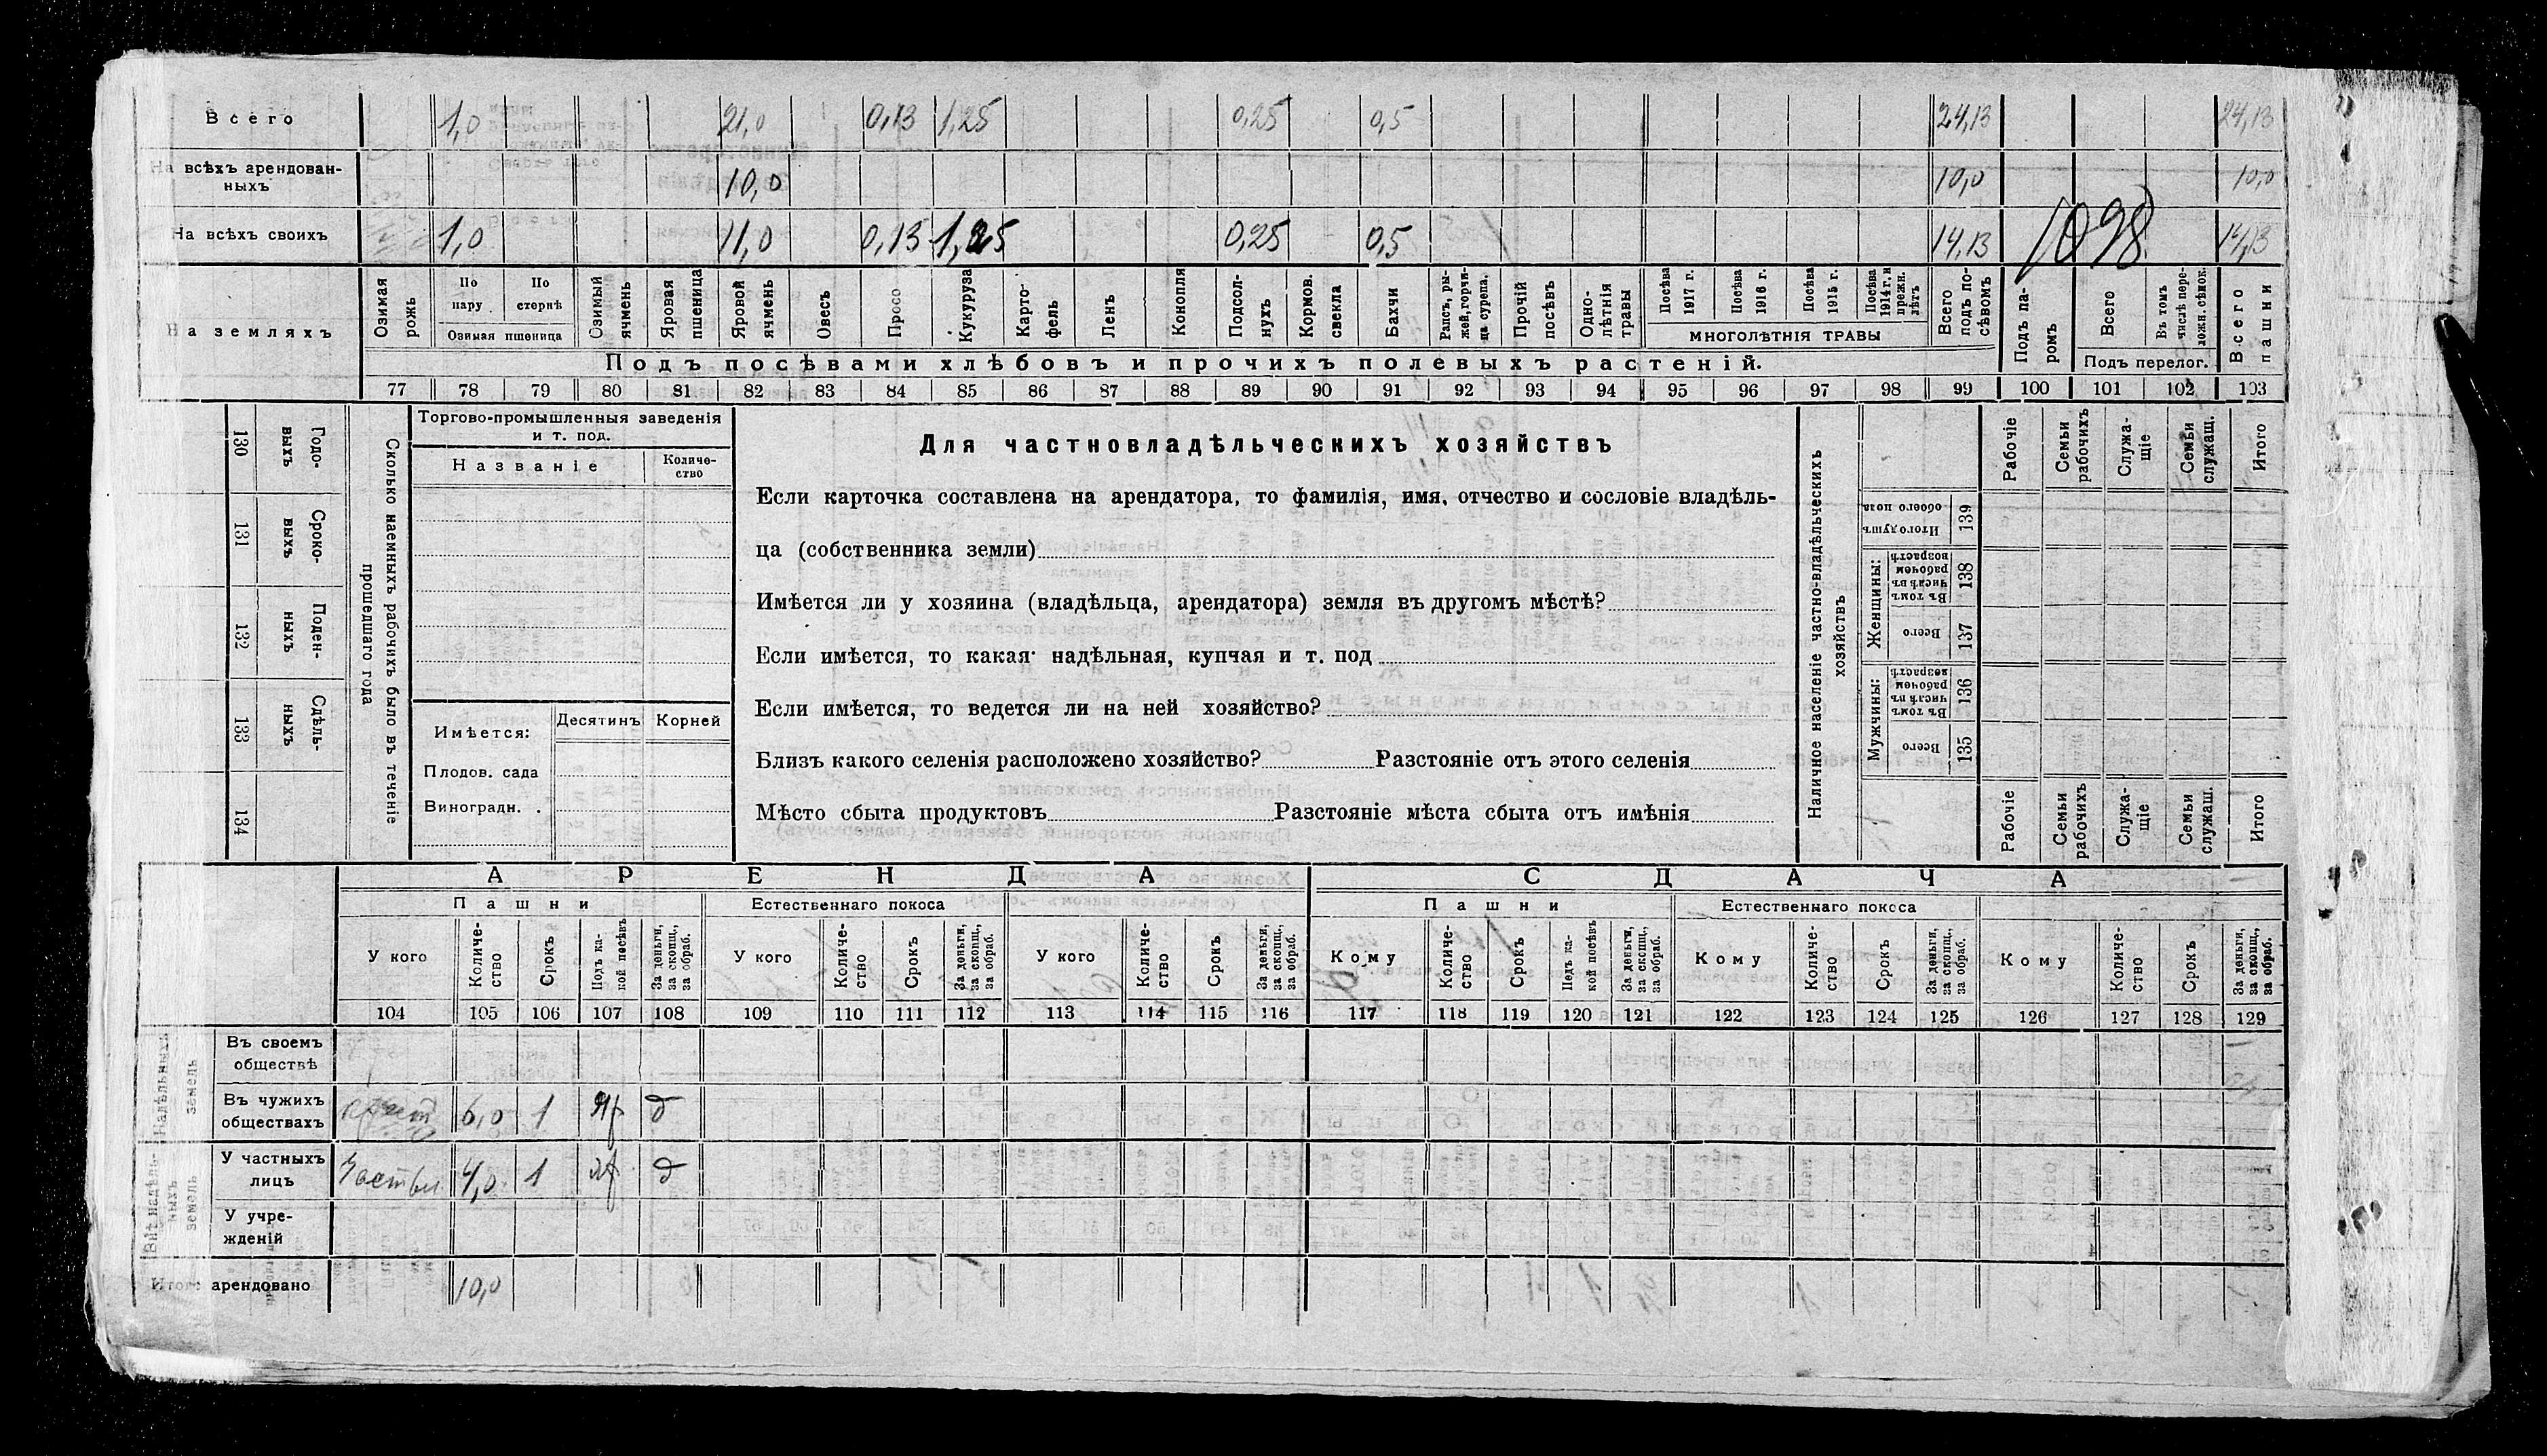 Всего 1,0 21,0 0,13 1,25 0,25 0,5 24,13 24,13
На всѣхъ арендован-
ныхъ 10,0 10,0 10,0
На всѣхъ своихъ 1,0 11,0 0,13 1,25 0,25 0,5 14,13 1098 14,13
На земляхъ
Озимая рожь
По пару
По стернѣ
Озимая пшеница
Озимый ячмень
Яровая пшеница
Яровой ячмень
Овесъ
Просо
Кукуруза
Карто-
фель
Ленъ
Конопля
Подсол-
нухъ
Кормов.
свекла
Бахчи
Рапсъ, ры-
жей, горчи-
ца сурепа.
Прочій
посѣвъ
Одно-
лѣтнія
травы
Посѣва
1917 г.
Посѣва
1916 г.
Посѣва
1915 г.
Посѣва
1914 г. и
прежн.
лѣтъ
МНОГОЛѢТНІЯ ТРАВЫ
Всего
подъ по-
сѣвомъ
Подъ па-
ромъ
Всего
Въ томъ
числѣ пере-
ложн. сѣнок.
Подъ перелог.
Всего
пашни
Подъ посѣвами хлѣбовъ и прочихъ полевыхъ растеній.
77 78 79 80 81 82 83 84 85 86 87 88 89 90 91 92 93 94 95 96 97 98 99 100 101 102 103
130 Годо-
выхъ
131 Сроко-
выхъ
132 Поден-
ныхъ
133 Сдѣль-
ныхъ
134
Сколько наемныхъ рабочихъ было въ теченіе
прошедшаго года
Торгово-промышленныя заведенія
и т. под.
Названіе
Количе-
ство
Имѣется:
Десятинъ
Корней
Плодов. сада
Виноградн.
Для частновладѣльческихъ хозяйствъ
Если карточка составлена на арендатора, то фамилія, имя, отчество и сословіе владѣль-
ца (собственника земли)
Имѣется ли у хозяина (владѣльца, арендатора) земля въ другомъ мѣстѣ?
Если имѣется, то какая· надѣльная, купчая и т. под
Если имѣется, то ведется ли на ней хозяйство?
Близъ какого селенія расположено хозяйство? Разстояніе отъ этого селенія
Мѣсто сбыта продуктовъ Разстояніе мѣста сбыта отъ имѣнія
Наличное населеніе частно-владѣльческихъ
хозяйствъ
Рабочіе
Семьи
рабочихъ
Служа-
щіе
Семьи
служащ.
Итого
Итого душъ
обоего пола
139
Женщины:
Въ томъ
числѣ въ
рабочем
возрастѣ
138
Всего
137
Мужчины:
Въ томъ
числѣ въ
рабочем
возрастѣ
136
Всего
135
Рабочіе
Семьи
рабочихъ
Служа-
щіе
Семьи
служащ.
Итого
АРЕНДА
СДАЧА
Пашни
Естественнаго покоса
Пашни
Естественнаго покоса
У кого
Количе-
ство
Срокъ
Подъ ка-
кой посѣвъ
За деньги,
за скопщ.,
за обраб.
У кого
Количе-
ство
Срокъ
За деньги,
за скопщ.,
за обраб.
У кого
Количе-
ство
Срокъ
За деньги,
за скопщ.,
за обраб.
Кому
Количе-
ство
Срокъ
Подъ ка-
кой посѣвъ
За деньги,
за скопщ.,
за обраб.
Кому
Количе-
ство
Срокъ
За деньги,
за скопщ.,
за обраб.
Кому
Количе-
ство
Срокъ
За деньги,
за скопщ.,
за обраб.
104 105 106 107 108 109 110 111 112 113 114 115 116 117 118 119 120 121 122 123 124 125 126 127 128 129
Надѣльныхъ
земель
Въ своемъ
обществѣ
Въ чужихъ
обществахъ 6,0 1 Яр д
Внѣ надѣль-
ныхъ
земель
У частныхъ
лицъ 4,0 1 яр д
У учре-
жденій
Итого арендовано 10,0